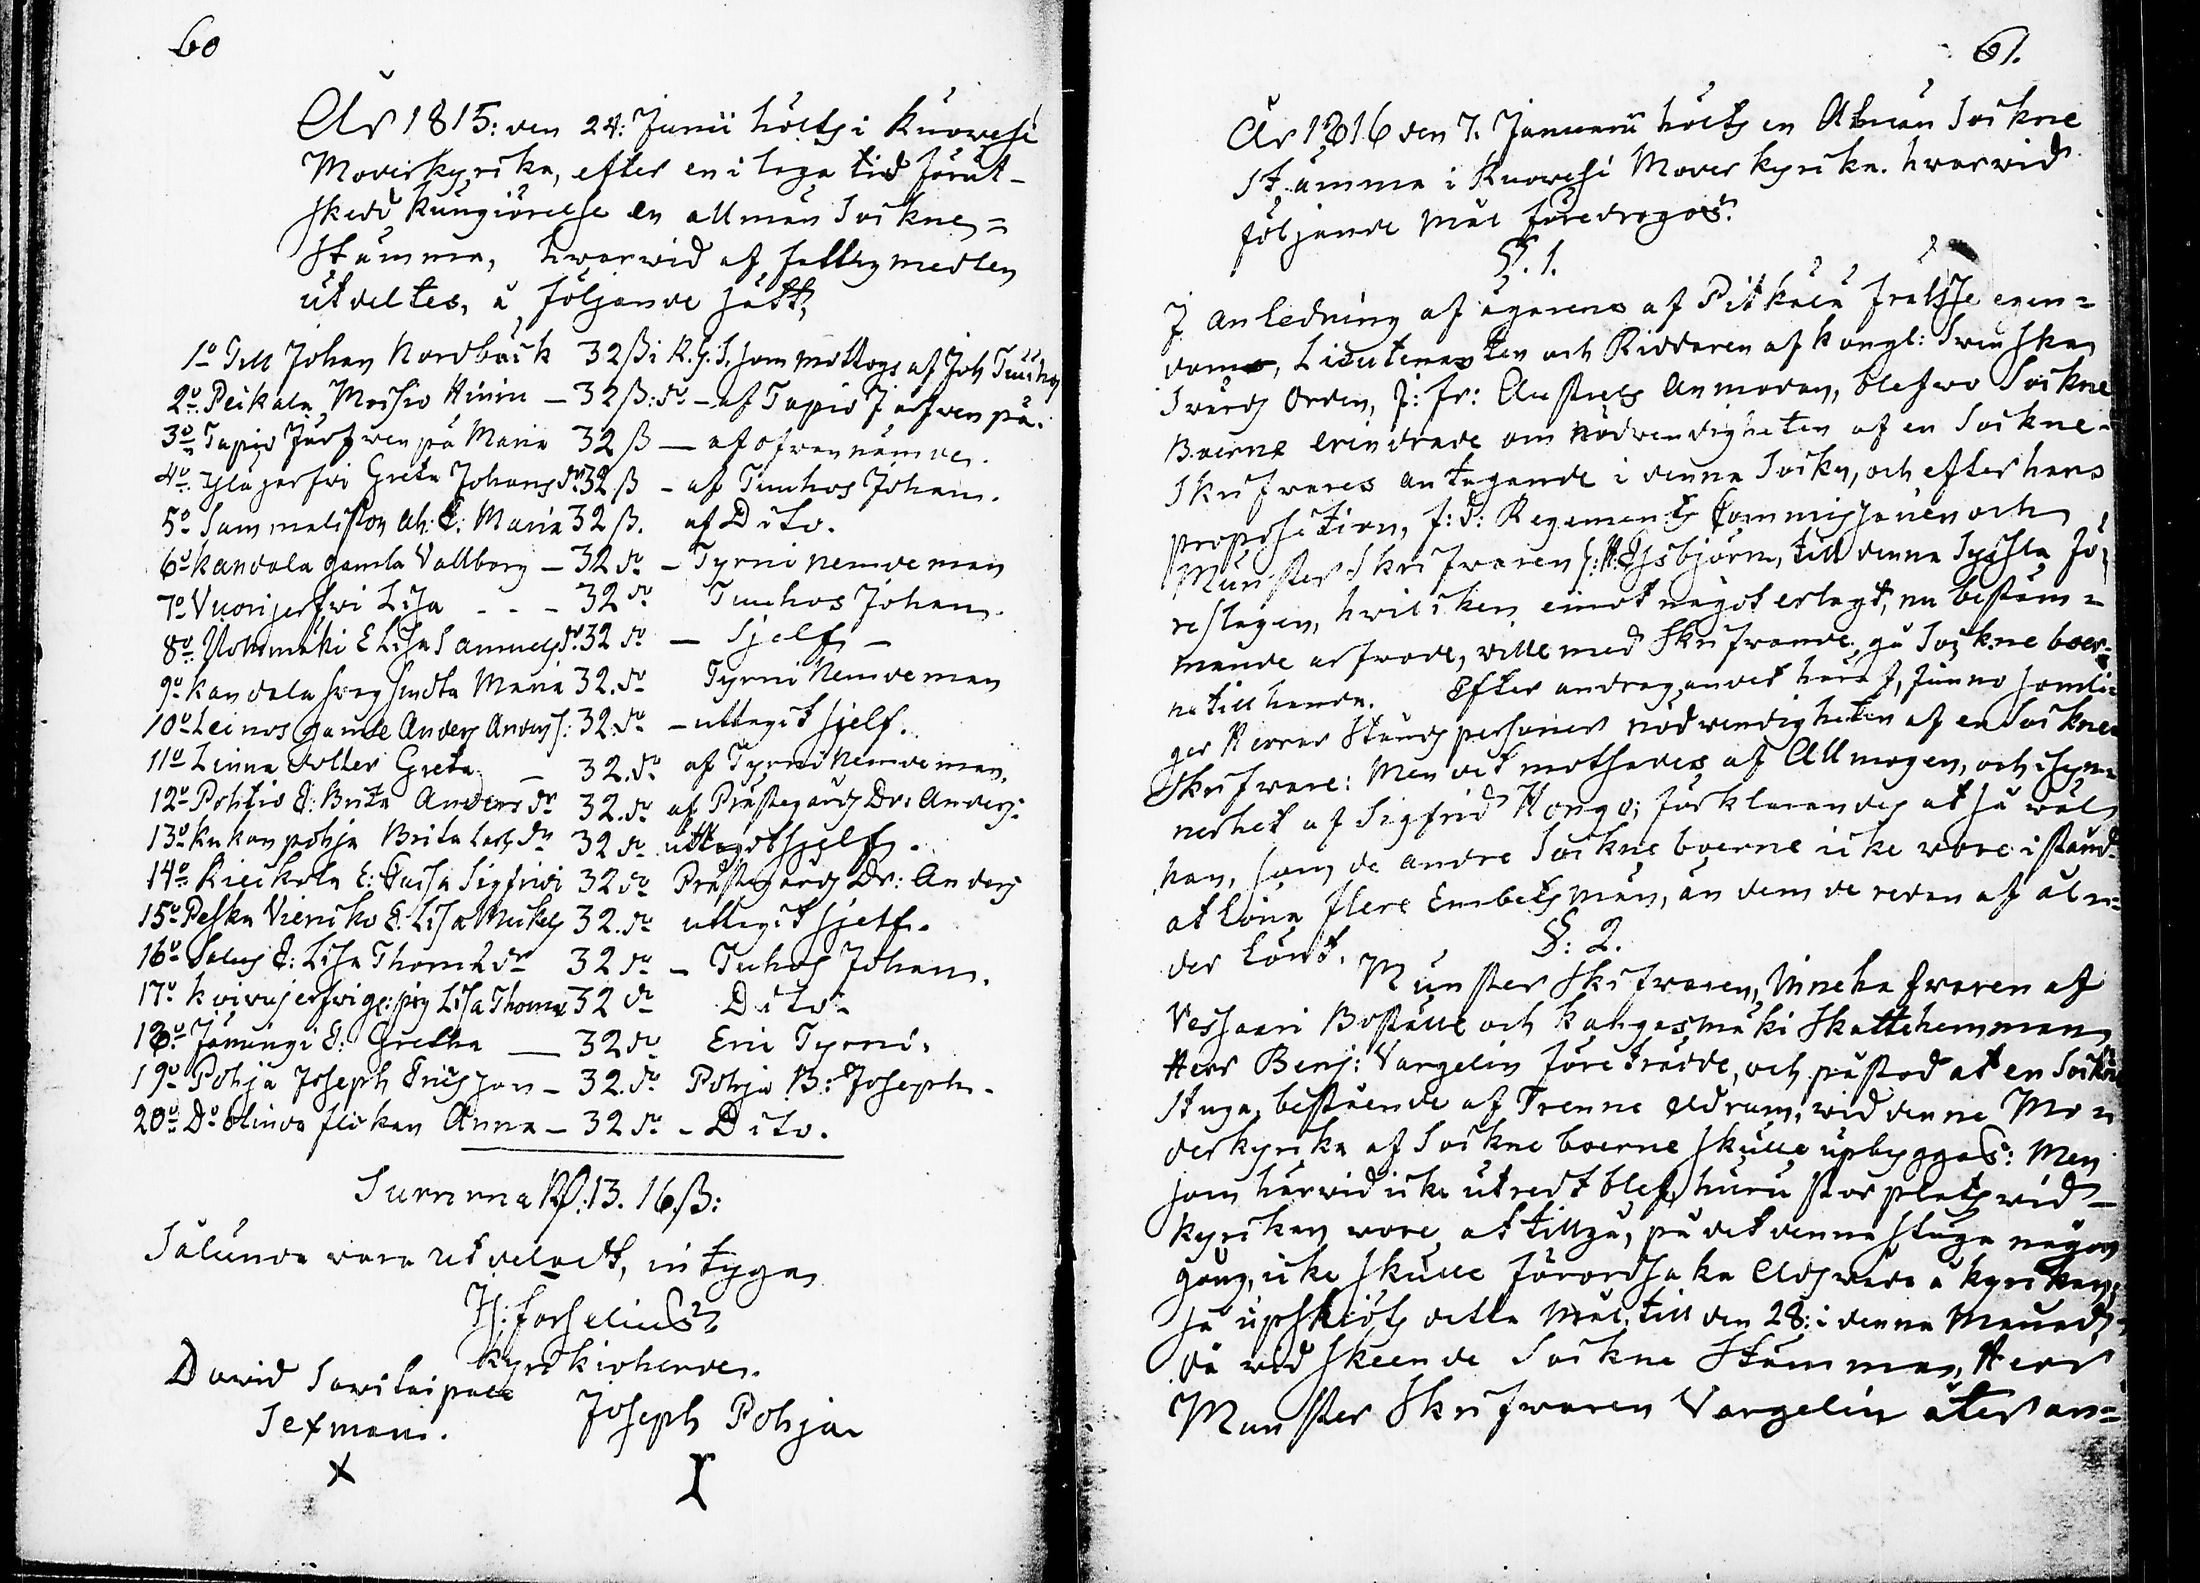 60
År 1815: den 24: Junii hölts i Kuovesi
Moderkyrka, efter en i laga tid förut-
skedd kungiörelse en allmän Sockne=
stämma, hvarvid af fattigmedlen
utdeltes, å följande sätt,
1o Till Johan Nordbäck 32 ß i R.G.S. som mottogs af Joh Tuuhos
2o Peikala Matts Hinin - 32 ß: do - af Tapio Järfvenpä.
3o Tapio Järfvenpä Maria 32 ß — af ofvannämde.
4o Yläjerfvi Greta Johans dr 32 ß - af Tuuhos Johan.
5o Sammaliston Ah: E: Maria 32 ß. af Dito.
6o Kandola gamla Vallborg - 32 do - Tyrni Nemdeman
7o Vuorijerfvi Lisa - - - 32 do Tuuhos Johan.
8o E Lisa Samuels dr. 32 do — Sjelf -
9o Kandola Maria 32. do Tyrni Nemdeman
10o Leinos gamle Anders Anders S: 32. do - uttagit sjelf.
11o Linna Greta — 32. do af Tyrni Nemdeman.
12o Pohtio E: Brita Anders dr 32. do af Prästegårds Dr: Anders:
13o Kukonpohja Brita Lars dr 32 do uttagit sjelf.
14o Rieckola E: Caisa Sigfrids 32 do Prästegårds Dr: Anders
15o Peska Viericko E. Lisa Mickels 32. do uttagit sjelf.
16o Salus E: Lisa Thomæ dr 32 do - Tuhos Johan.
17o Koivujerfvi Lisa Thomæ 32 do Dito
18o Jämingi E: Gretha — 32 do Eri Tyrni.
19o Pohja Joseph Ericsson - 32. do Pohja B: Joseph.
20o Do blinda flickan Anna - 32 do - Dito.
Summa Rd. 13. 16 ß:
Sålunda vara utdeladt, intygas
Js: Forselius.
Kyrkioherde.
David Savilaipale
Sexman.
Joseph Pohja
61.
År 1816 den 7. Januarii hölts en Allmän Sockne
Stämma i Kuovesi Moderkyrka. hvarvid
följande Mål föredrogos.
§. 1.
I anledning af ägarens af Pitkälä frälsse egen=
dom, Lieutenanten och Riddaren af Kongl: Svenska
Svärds Orden, J: Fr: Anmodan, blefvo Sockne
Boerne erindrade om nödvendigheten af en Sockne-
Skrifvares antagande i denna Socken, och efter hans
proposition, f: d: Regements Commissarien och
Munster Skrifvaren Espbjörn, till denna Syssla fö=
reslagen, hvilcken emot något erlagt, nu bestäm=
mande arfvode, ville med skrifvande, gå Sockneboer=
ne till handa. Efter andragandet häraf, funno somli=
ge Herrar Ståndspersoner nödvendigheten af en Sockne=
skrifvare: Men det motsades af Allmogen, och isyn=
nerhet af Sigfrid Hongo; förklarandes at så väl
han, som de andre Sockneboerne icke vore i stånd
at löna flere Embetsmän, än dem de redan af ål=
der lönt.
§: 2.
Munster Skrifvaren, Innehafvaren af
Vessaari Boställe och Kangasmäki Skattehemman,
Herr Benj: Vargelin företrädde, och påstod at en Sockne
stuga, bestående af Trenne Eldrum, vid denne Mo=
derkyrka af Sockneboerne skulle upbyggas: Men
som härvid icke utredt blef, huru stor plats vid
kyrkan vore at tillgå, på det denna stuga någon
gång, icke skulle förordsaka Eldsvåda å kyrkan;
så upskiöts detta Mål, till den 28: i denna Månad,
då vid skeende Sockne Stämman, Herr
Munster Skrifvaren Vargelin åter an=